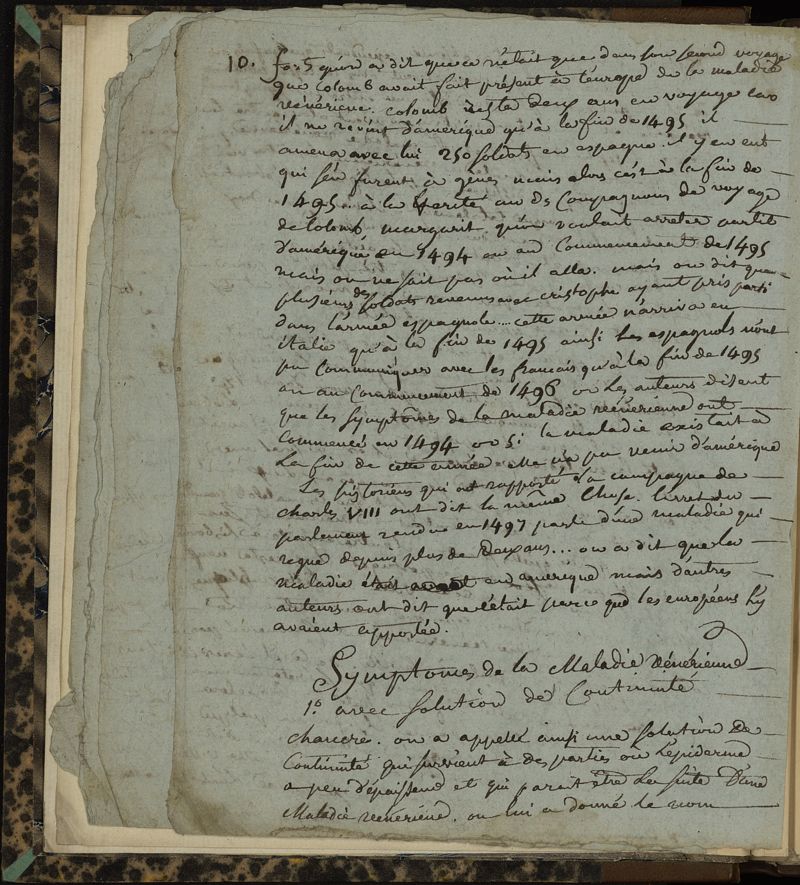 10. fois qu'on a dit que ce n'était que dans son second voyage
que colomb avait fait présent à l'europe de la maladie
vénérienne. colomb resta deux ans en voyage car
il ne revint d'amérique qu'à la fin de 1495 il
amena avec lui 250 soldats en espagne. il y en eut
qui s'en furent à gênes mais alors c'est à la fin de
1495. à la vérité un des compagnons de voyage
de Colomb, margarit, qu'on voulait arreter partit
d'amérique en 1494 ou au Commencement de 1495
mais on ne sait pas où il alla. mais on dit que
plusieurs des soldats revenus avec cristophe ayant pris parti
dans l'armée espagnole.... cette armée n'arriva en
italie qu'à la fin de 1495 ainsi les espagnols n'ont
pu Communiquer avec les français qu'à la fin de 1495
ou au Commencement de 1496 or les auteurs disent
que les symptômes de la maladie vénérienne ont
Commencé en 1494 or si la maladie existait à
la fin de cette année elle n'a pu venir d'amérique
Les historiens qui ont rapporté la campagne de
charles VIII ont dit la même Chose. l'arret du
parlement rendu en 1497 parle d'une maladie qui
regne depuis plus de deux ans... on a dit que la
maladie était en amerique mais d'autres
auteurs ont dit que c'était parce que les européens l'y
avaient apportée.
Symptomes de la Maladie Vénérienne
1º avec solution de Continuité
chancre. on a appellé ainsi une solution de
Continuité qui survient à des parties où l'épiderme
a peu d'épaisseur et qui parait être la suite d'une
Maladie vénérienne. on lui a donné le nom